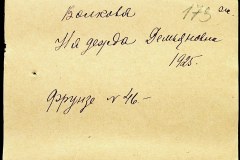 Волкова 173 см.
Надежда Демьяновна
1925.
Фрунзе № 46 –